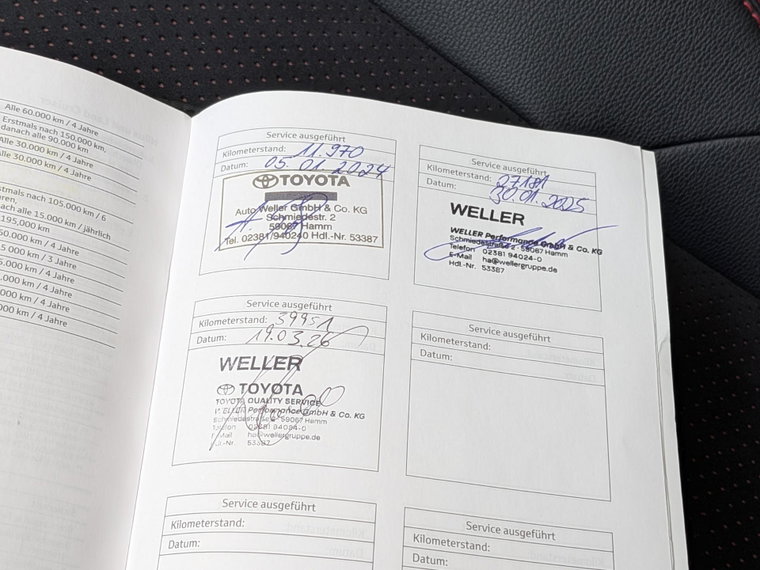 Alle 60.000 km / 4 Jahre
Erstmals nach 150.000 km,
danach alle 90.000 km
Alle 30.000 km / 4 Jahre
Alle 30.000 km / 4 Jahre
nach 105.000 km / 6
alle 15.000 km / jährlich
195.000 km
km / 4 Jahre
000 km / 4 Jahre
000 km / 3 Jahre
000 km / 4 Jahre
000 km / 4 Jahre
000 km / 4 Jahre
km / 4 Jahre
Service ausgeführt
Kilometerstand: 11.970
Datum: 05.01.2024
TOYOTA
Auto Weller GmbH & Co. KG
Schmiedestr. 2
59067 Hamm
Tel. 02381/940240 Hdl.-Nr. 53387
Service ausgeführt
Kilometerstand: 27181
Datum: 30.01.2025
WELLER
WELLER Performance GmbH & Co. KG
Schmiedestraße 2 · 59067 Hamm
Telefon 02381 94024-0
E-Mail ha@wellergruppe.de
Hdl.-Nr. 53387
Service ausgeführt
Kilometerstand: 39951
Datum: 19.03.26
WELLER
TOYOTA
TOYOTA QUALITY SERVICE
WELLER Performance GmbH & Co. KG
Schmiedestraße 2 · 59067 Hamm
Telefon 02381 94024-0
E-Mail ha@wellergruppe.de
Hdl.-Nr. 53387
Service ausgeführt
Kilometerstand:
Datum:
Service ausgeführt
Kilometerstand:
Datum:
Service ausgeführt
Kilometerstand:
Datum: